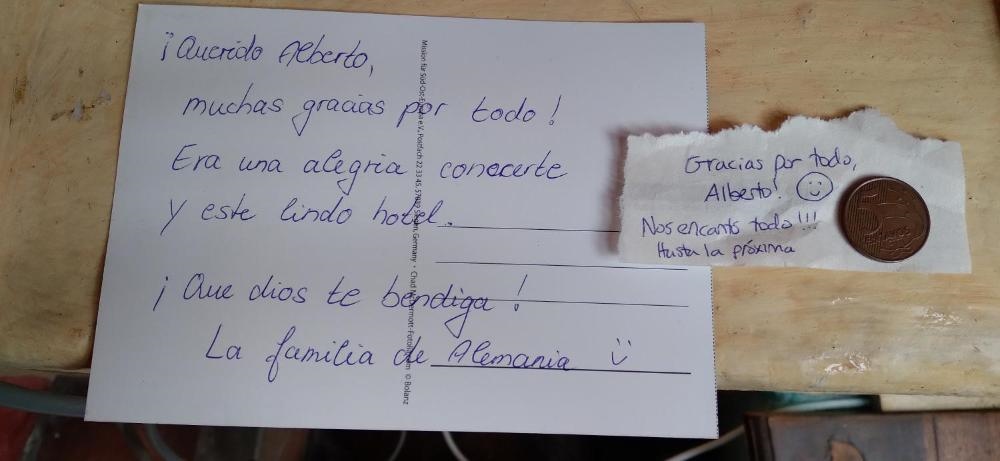 ¡Querido Alberto,
muchas gracias por todo!
Era una alegria conocerte
y este lindo hotel.
¡Que dios te bendiga!
La familia de Alemania
Mission für Süd-Ost-Europa e.V., Postfach 22 33 45, 57039 Siegen, Germany • Chad © Bolanz
Gracias por todo,
Alberto!
Nos encantó todo!!!
Hasta la próxima
5
CENTAVOS